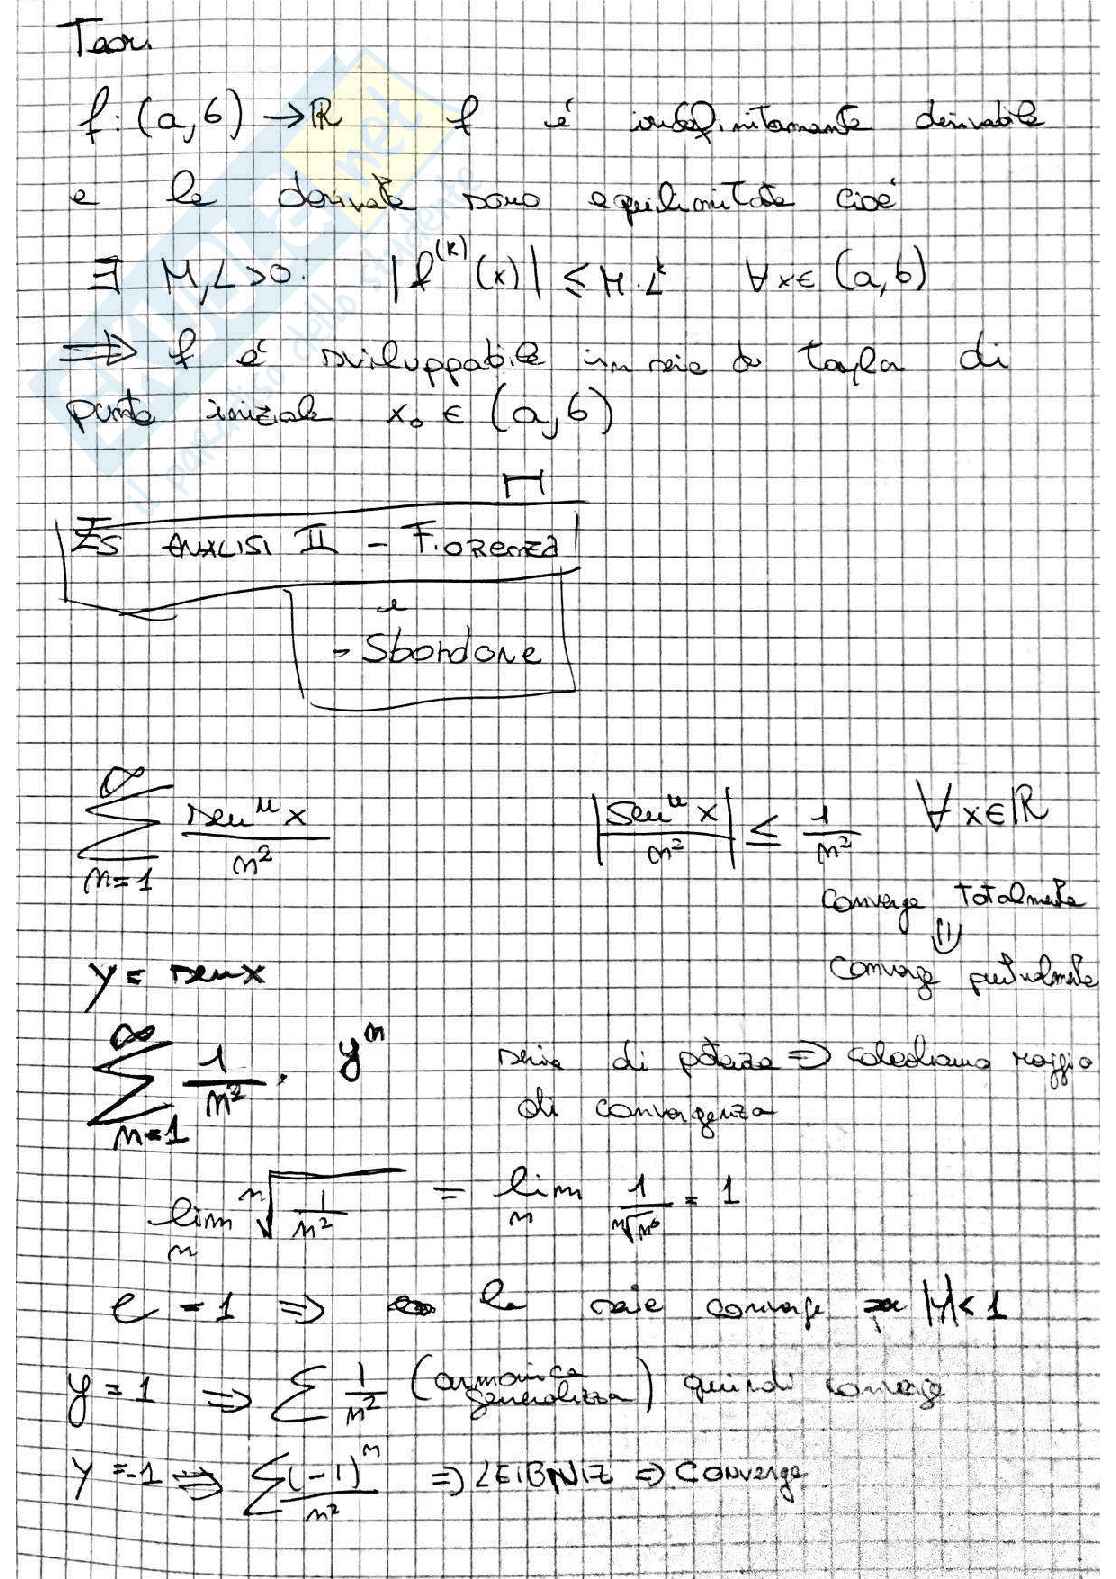 Teor.
f: (a,b) → ℝ f é indefinitamente derivabile
e le derivate sono equilimitate cioé
∃ M,L>0: |f^(k)(x)| ≤ M·L^k ∀x∈ (a,b)
⟹ f é sviluppabile in serie di Taylor di
punto iniziale x₀ ∈ (a,b)
ES ANALISI II - Fiorenza
e
- Sbordone
∑_{n=1}^∞ sen^n x / n² |sen^n x / n²| ≤ 1/n² ∀x∈ℝ
converge totalmente
⇓
converge puntualmente
y = sen x
∑_{n=1}^∞ 1/n² · y^n serie di potenze ⇒ calcoliamo raggio
di convergenza
lim_n ⁿ√(1/n²) = lim_n 1/ⁿ√n² = 1
ρ = 1 ⇒ la serie converge per |y| < 1
y = 1 ⇒ ∑ 1/n² (armonica generalizza) quindi converge
y = -1 ⇒ ∑ (-1)^n / n² ⇒ LEIBNIZ ⇒ Converge
SKUOLA.net
il paradiso dello studente